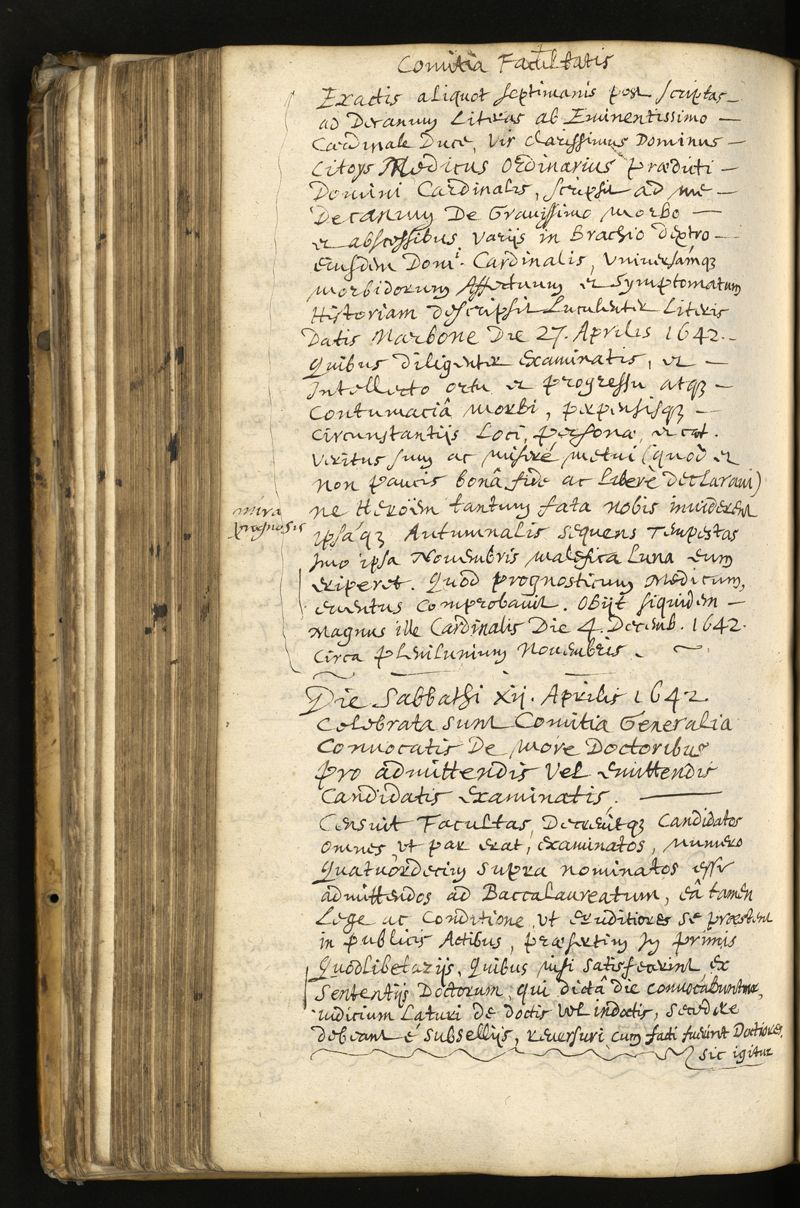 Comitia Facultatis
Exactis aliquot septimanis post scriptas
ad Decanum Literas ab Eminentissimo
Cardinale Duce, Vir clarissimus Dominus
Citoys Medicus Ordinarius prædicti
Domini Cardinalis, scripsit ad me
Decanum De Grauissimo morbo
et abscessibus varijs in Brachio dextro
eiusdem Domi. Cardinalis, Vniversamqȝ
morbidorum Affectuum et Symptomatum
Historiam descripsit Luculenter Literis
Datis Narbone Die 27. Aprilis 1642.
Quibus diligenter examinatis, et
Intellecto ortu et progressu atqȝ
Contumaciâ morbi, perpensisqȝ
Circunstantijs Loci, personæ, et cæt.
Veritus sum ac miserè metui (quod et
non paucis bonâ fide ac Liberè declaraui)
mira prognosis
ne Heroëm tantum fata nobis inuiderent
ipsáqȝ Autumnalis sequens Tempestas
Imo ipsa Nouembris malefica Luna eum
eriperet. Quod prognosticum Medicum,
euentus comprobauit. Obijt siquidem
Magnus ille Cardinalis Die 4. Decemb. 1642.
Circa plenilunium Nouembris.
Die Sabbathi xij. Aprilis 1642
Celebrata sunt Comitia Generalia
Convocatis De more Doctoribus
pro admittendis vel emittendis
Candidatis examinatis.
Censuit Facultas, Decreuitqȝ Candidatos
omnes, vt par erat, examinatos, numero
Quatuordecim supra nominatos esse
admittendos ad Baccalaureatum, eâ tamen
Lege ac Conditione, vt eruditiores se præstent
in publicis Actibus, præsertim in primis
Quodlibetarijs, Quibus nisi satisfecerint ex
Sententijs Doctorum, qui dictâ die convocabuntur,
iudicium Laturi de doctis vel indoctis, secedere
debeant é subsellijs, reuersuri cum facti fuerint Doctiores.
sic igitur